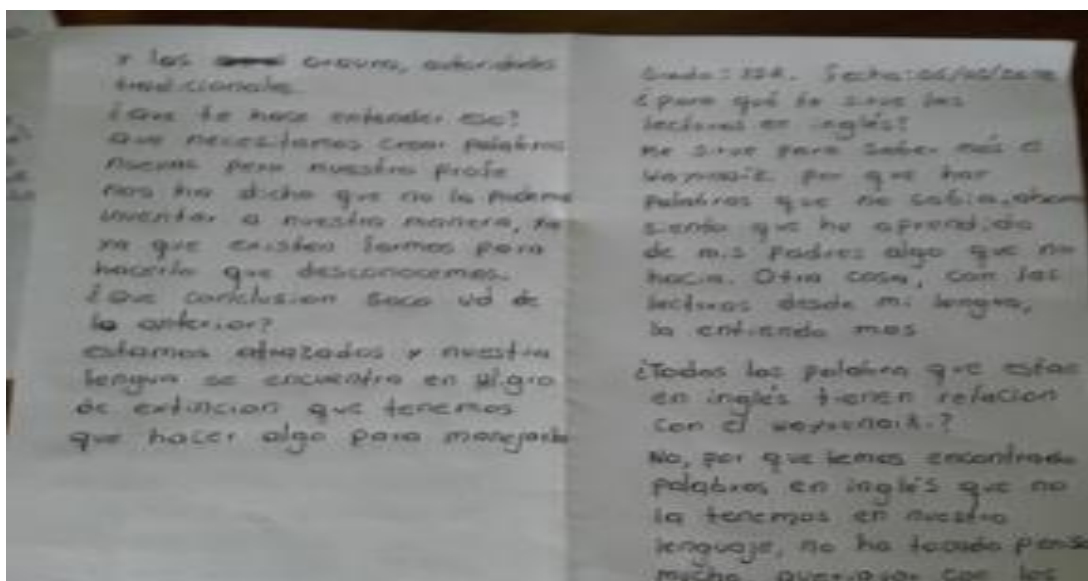 y los orauna, autoridades
tradicionales.
¿Que te hace entender eso?
Que necesitamos crear palabras
nuevas pero nuestro profe
nos ha dicho que no la podemos
inventar a nuestra manera, ya
ya que existen formas para
hacerlo que desconocemos.
¿Que conclusion saca Ud de
lo anterior?
estamos atrazados y nuestra
lengua se encuentra en
de extincion que tenemos
que hacer algo para manejarla
Grado: Fecha:
¿para qué te sirve las
lecturas en inglés?
me sirve para saber más el
por que hay
palabras que no sabia, ahora
siento que he aprendido
de mis padres algo que no
hacia. Otra cosa, con las
lecturas desde mi lengua,
la entiendo mas
¿Todas las palabra que estas
en inglés tienen relacion
con el wayuunaik.?
No, por que hemos encontrado
palabras en inglés que no
la tenemos en nuestro
lenguaje, no ha tocado pensar
mucho averiguar con los